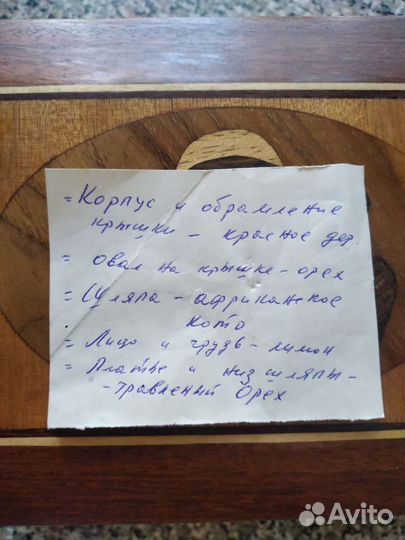 = Корпус и обрамление
крышки – красное дер.
= овал на крышке – орех
= Шляпа – африканское
кото
= Лицо и грудь – лимон
= Платье и низ шляпы –
– травленый Орех
Avito